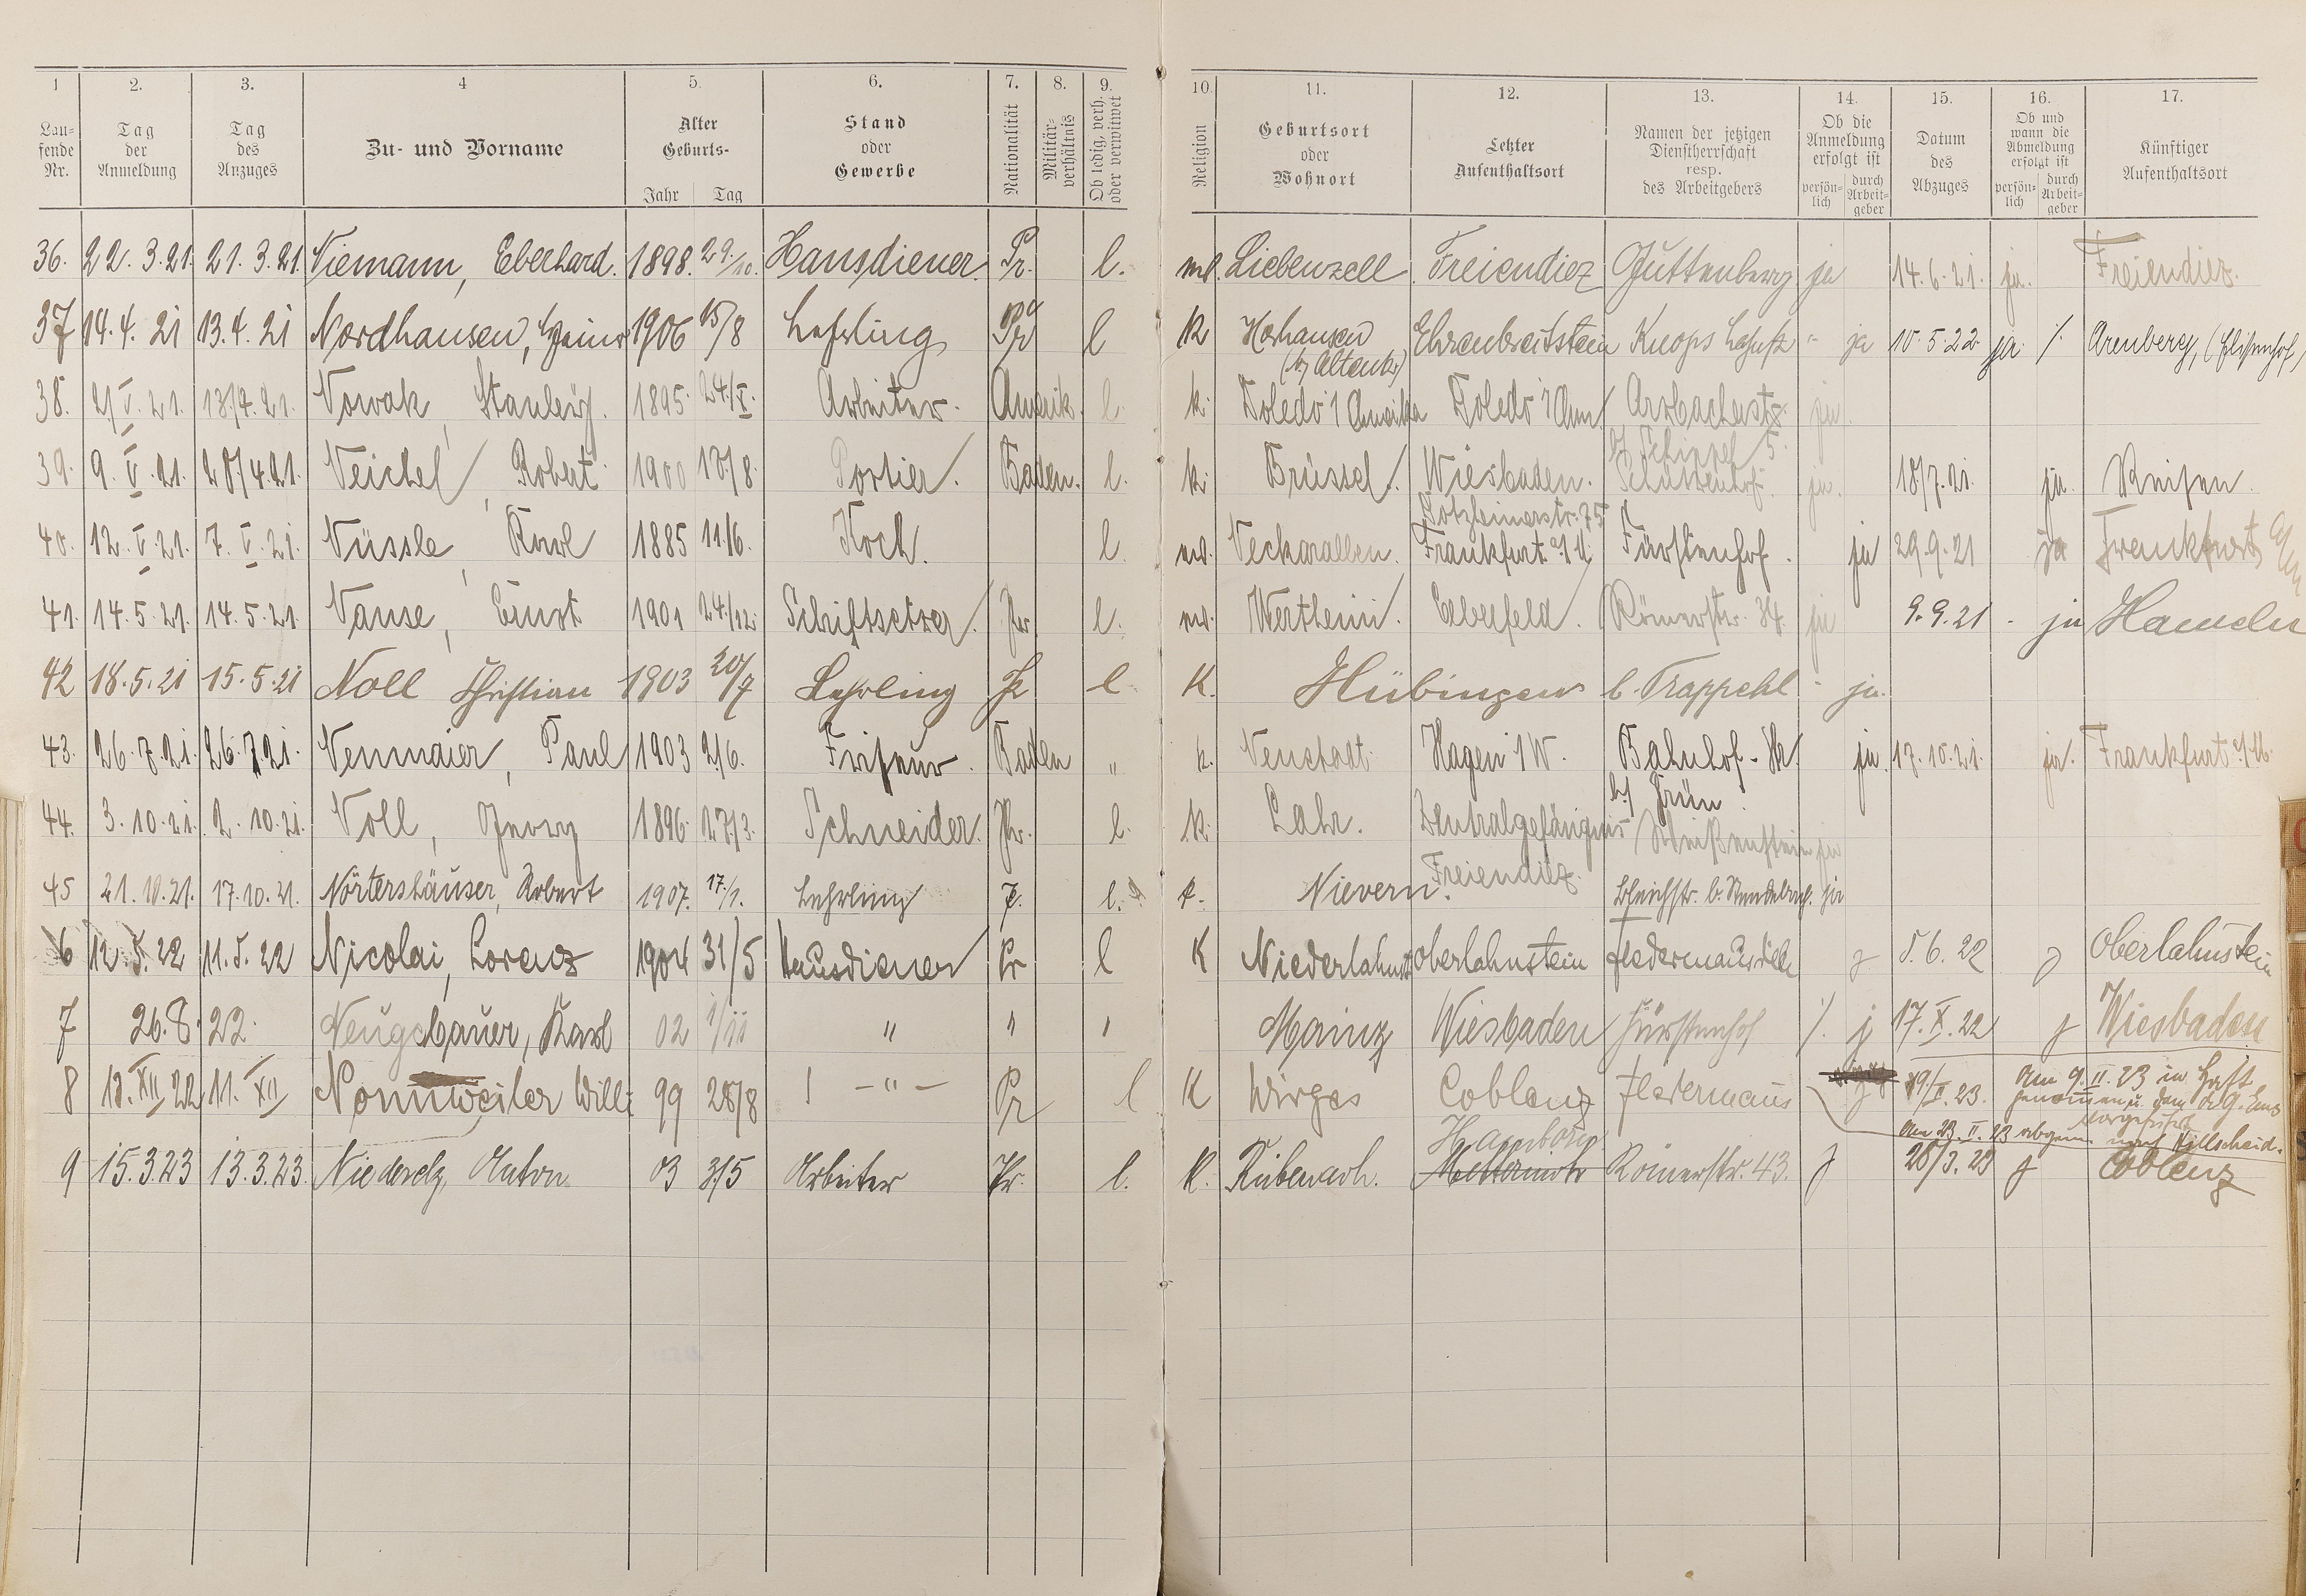 1 2. 3. 4 5. 6. 7. 8. 9. 10. 11. 12. 13. 14. 15. 16. 17.
Lau-fende Nr. Tag der Anmeldung Tag des Anzuges Zu- und Vorname Alter Geburts- Jahr Tag Stand oder Gewerbe Nationalität Militär-verhältnis Ob ledig, verh. oder verwitwet Religion Geburtsort oder Wohnort Letzter Aufenthaltsort Namen der jetzigen Dienstherrschaft resp. des Arbeitgebers Ob die Anmeldung erfolgt ist persön-lich durch Arbeit-geber Datum des Abzuges Ob und wann die Abmeldung erfolgt ist persön-lich durch Arbeit-geber Künftiger Aufenthaltsort
36. 22.3.21. 21.3.21. Niemann, Eberhard. 1898. 29./10. Hausdiener. Pr. l. Liebenzell Freiendiez Guttenberg ja 14.6.21. ja. Freiendiez.
37 14.4.21 13.4.21 Nordhausen, 1906 15/8 Lehrling Pr l K Horhausen Ehrenbreitstein Knops " ja 10.5.22 ja /. Arenberg,
(b/ Altenk)
38. 2/V.21. 18/4.21. Nowak, 1895. 24./V. Arbeiter. Amerik. l. k. Toledo i/Amerika Toledo i/Am. Arzbacherstr. ja
b/ Schippel 5.
39. 9.V.21. 20/4.21. Neichel, Robert 1900 10/8. Portier. Baden. l. k. Brüssel. Wiesbaden. Schützenhof. ja. 18/7.21. ja. Reisen.
40. 12.V.21. 7.V.21. Nüssle, Karl 1885 11/6. Koch. l. Neckarallen. Frankfurt a/M. Fürstenhof. ja 29.9.21 ja Frankfurt a/M
41. 14.5.21. 14.5.21. Nause, Ernst 1901 24./12. Schriftsetzer. Pr. l. Wertheim. Elberfeld. Römerstr. 34. ja 9.9.21 - ja Hameln
42 18.5.21 15.5.21 Noll Christian 1903 20/7 Lehrling Pr l K. Hübingen b. Trappehl - ja.
43. 26.7.21. 26.7.21. Neumaier, Paul 1903 2/6. Friseur. Baden " k. Neustadt. Hagen i/W. Bahnhof-H. ja. 17.10.21. ja. Frankfurt a/M.
b/ Grün.
44. 3.10.21. 2.10.21. Noll, Georg 1896. 27/3. Schneider. Pr. l. k. Lahr. Zentralgefängnis Freiendiez. ja
45 21.10.21. 17.10.21. Nörtershäuser, Robert 1907. 17./1. Lehrling P. l. k. Nievern. Bleichstr. ja
6 12.5.22 11.5.22 Nicolai, Lorenz 1904 31/5 Hausdiener Pr l K Niederlahnst Oberlahnstein Fledermausdiele j 5.6.22 j Oberlahnstein
7 26.8.22. Neugebauer, Karl 02 " " " Mainz Wiesbaden Fürstenhof /. j 17.X.22 j Wiesbaden
8 13.XII.22 11.XII Nonnweiler Willi 99 28/8 -"- Pr l K Wirges Coblenz Fledermaus 9/II.23. Am 9.II.23 in Haft
genommen u. dem A.G. Ems
vorgeführt
Am 23.II.23 abgem. nach Hillscheid.
9 15.3.23 13.3.23. Niederelz, Anton 03 3/5 Arbeiter Pr. l. K. Rübenach. Hamborn Metternich Römerstr. 43. j 28/3.23 j Coblenz